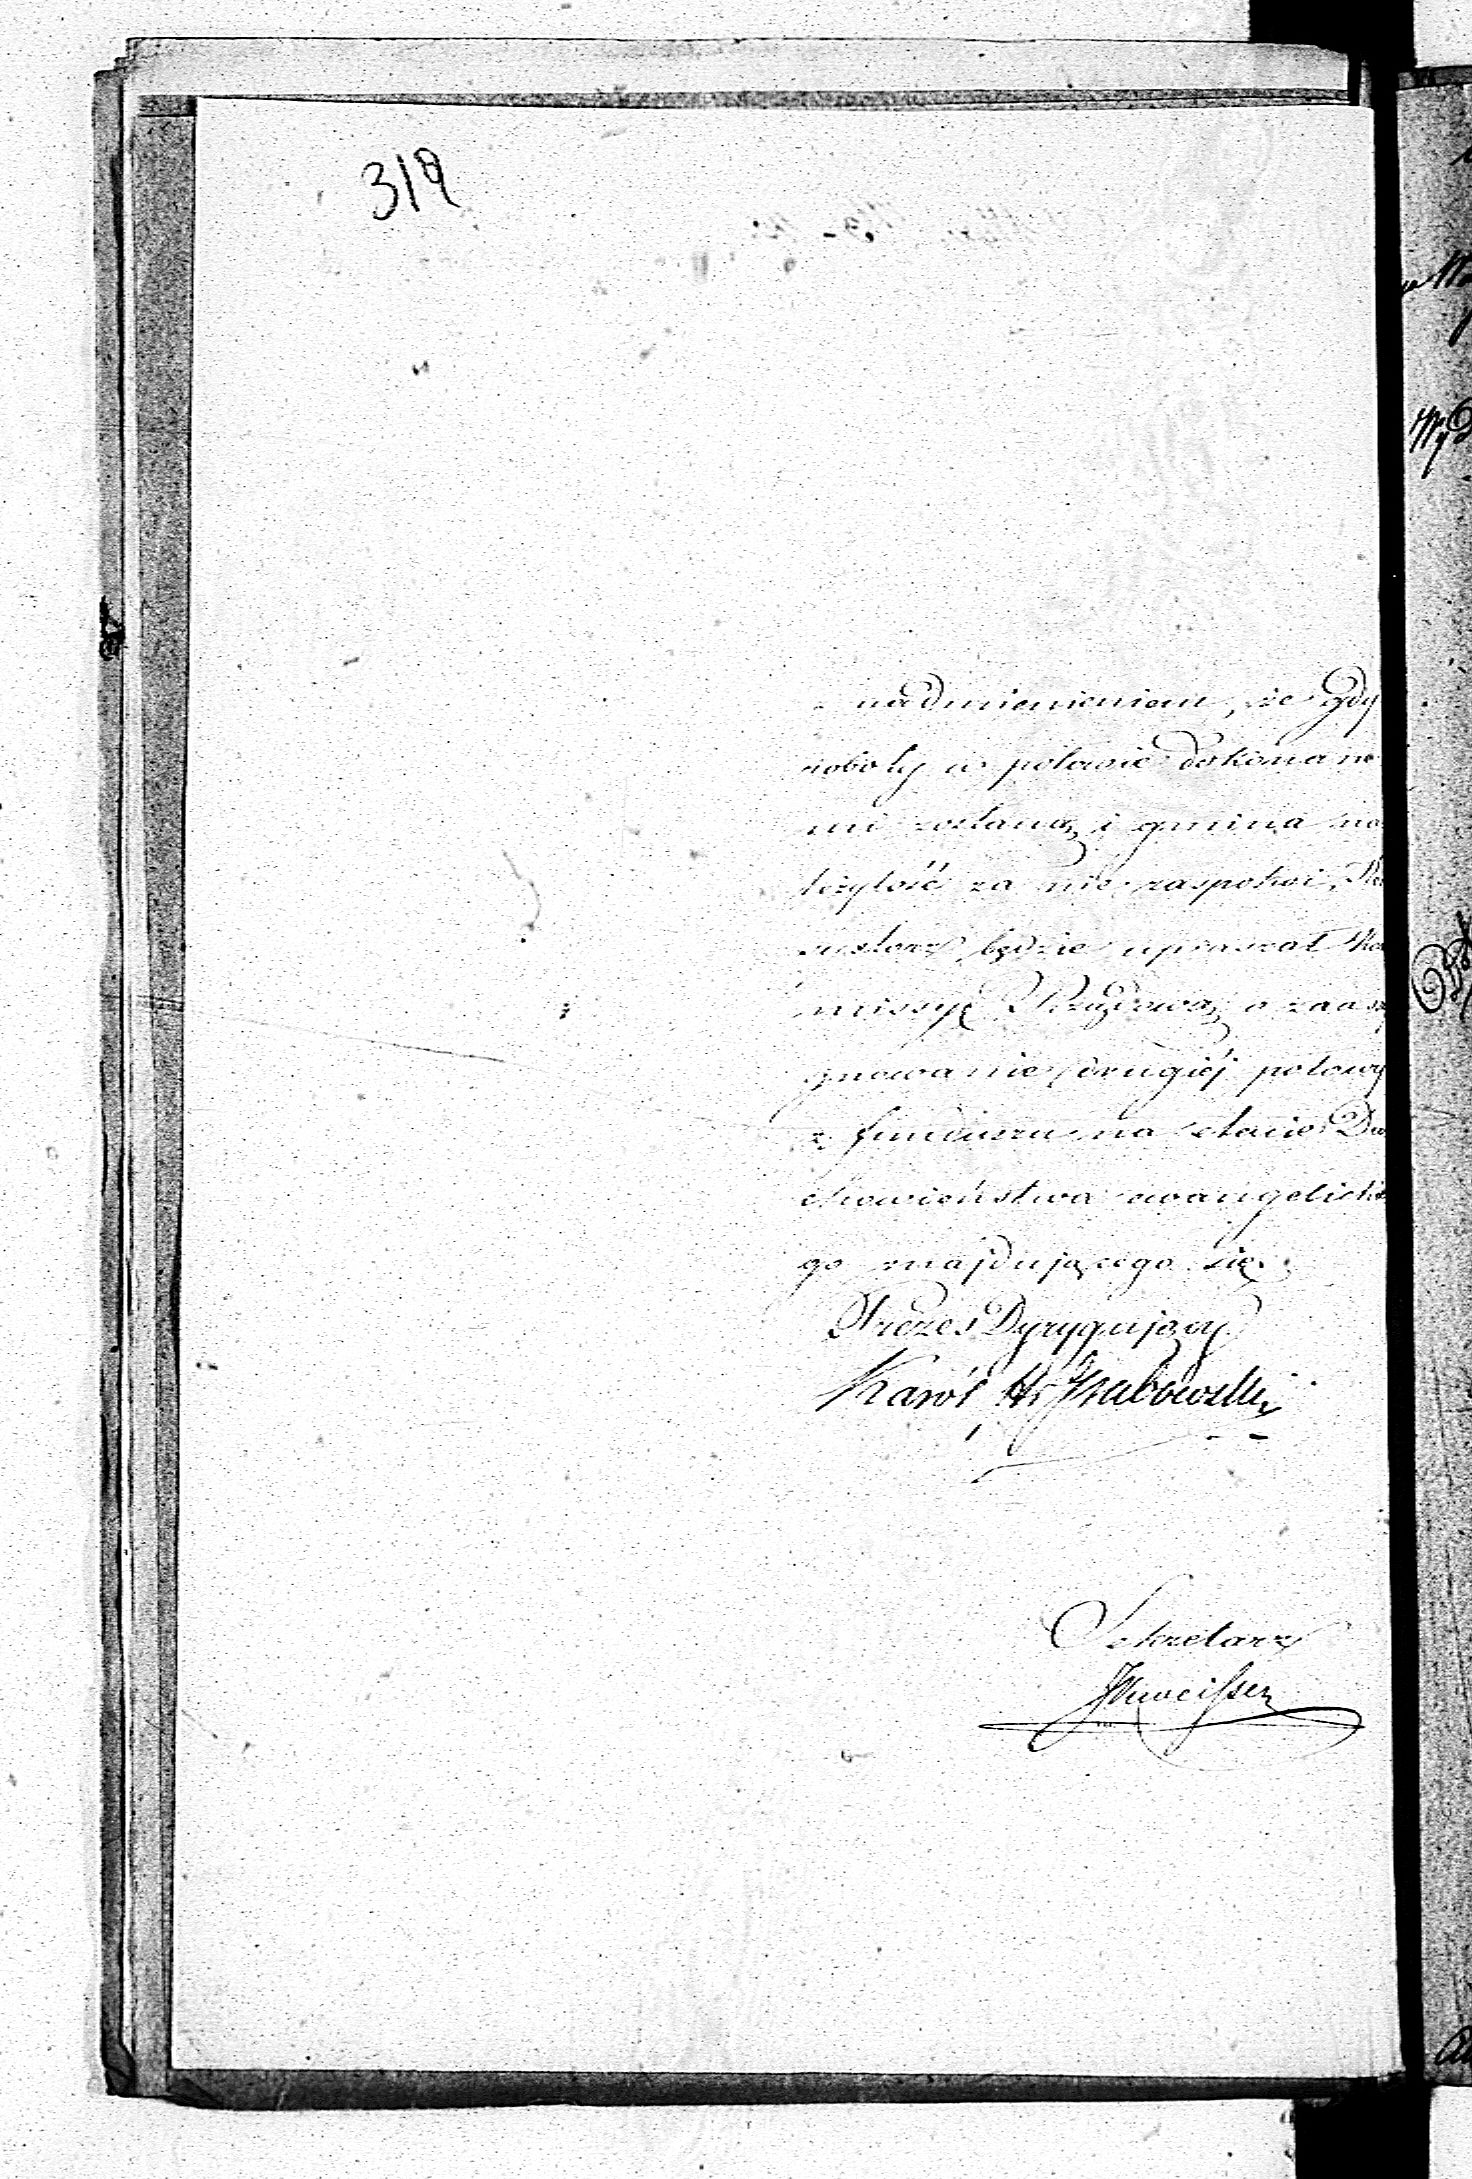 319
nadmienieniem, że gdy
roboty w połowie dokonane
mi zostaną i gmina na
leżytość za nie zaspokoi, Kon
systorz będzie upraszał Ko
missyę Rządową o zaasy
gnowanie drugiéj połowy
z funduszu na etacie Du
chowieństwa ewangelickie
go znajdującego się.
Prezes Dyrygujący
Karól Hr Grabowski
Sekretarz